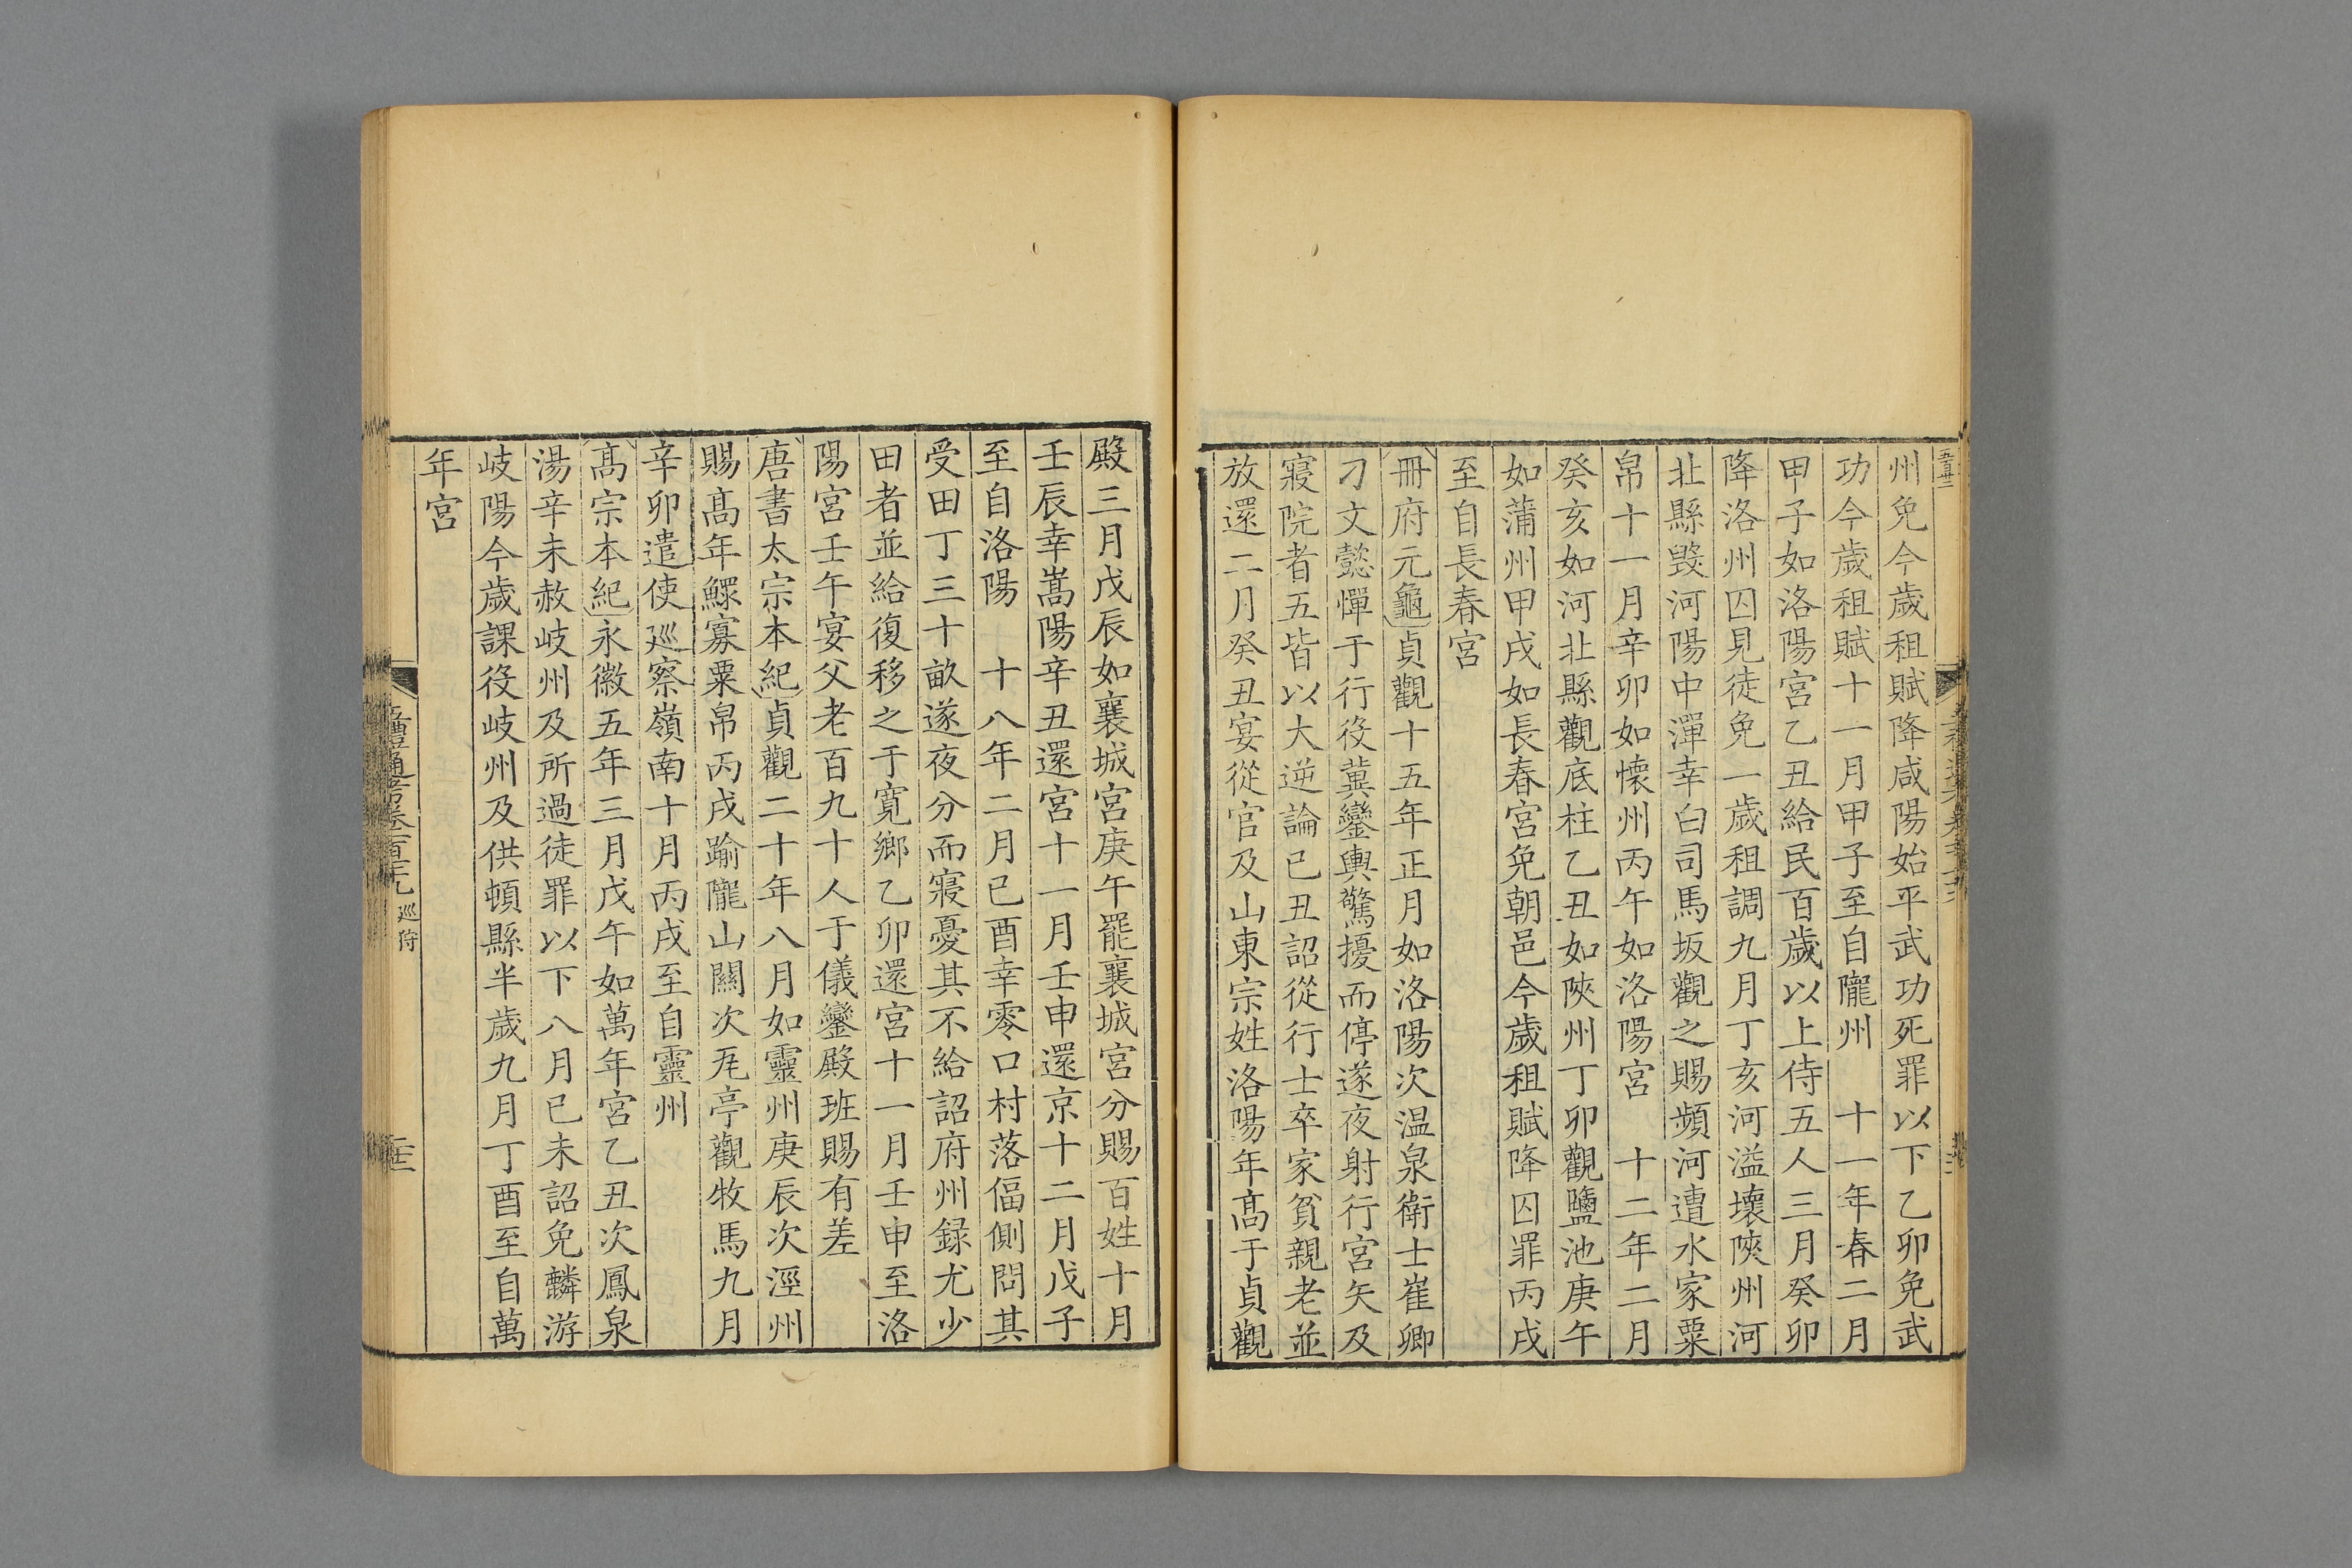 州免今歲租賦降咸陽始平武功死罪以下乙卯免武
功今歲租賦十一月甲子至自隴州　十一年春二月
甲子如洛陽宮乙丑給民百歲以上侍五人三月癸卯
降洛州囚見徒免一歲租調九月丁亥河溢壞陝州河
北縣毀河陽中潬幸白司馬坂觀之賜頻河遭水家粟
帛十一月辛卯如懷州丙午如洛陽宮　十二年二月
癸亥如河北縣觀底柱乙丑如陝州丁卯觀鹽池庚午
如蒲州甲戌如長春宮免朝邑今歲租賦降囚罪丙戌
至自長春宮
冊府元龜貞觀十五年正月如洛陽次温泉衛士崔卿
刁文懿憚于行役冀鑾輿驚擾而停遂夜射行宮矢及
寢院者五皆以大逆論已丑詔從行士卒家貧親老並
放還二月癸丑宴從官及山東宗姓洛陽年高于貞觀
殿三月戊辰如襄城宮庚午罷襄城宮分賜百姓十月
壬辰幸嵩陽辛丑還宮十一月壬申還京十二月戊子
至自洛陽　十八年二月已酉幸零口村落偪側問其
受田丁三十畝遂夜分而寢憂其不給詔府州録尤少
田者並給復移之于寛鄉乙卯還宮十一月壬申至洛
陽宮壬午宴父老百九十人于儀鑾殿班賜有差
唐書太宗本紀貞觀二十年八月如靈州庚辰次涇州
賜高年鰥寡粟帛丙戌踰隴山關次瓦亭觀牧馬九月
辛卯遣使巡察嶺南十月丙戌至自靈州
高宗本紀永徽五年三月戊午如萬年宮乙丑次鳳泉
湯辛未赦岐州及所過徒罪以下八月已未詔免麟游
岐陽今歲課役岐州及供頓縣半歲九月丁酉至自萬
年宮
五禮通考卷一百七十九　巡狩